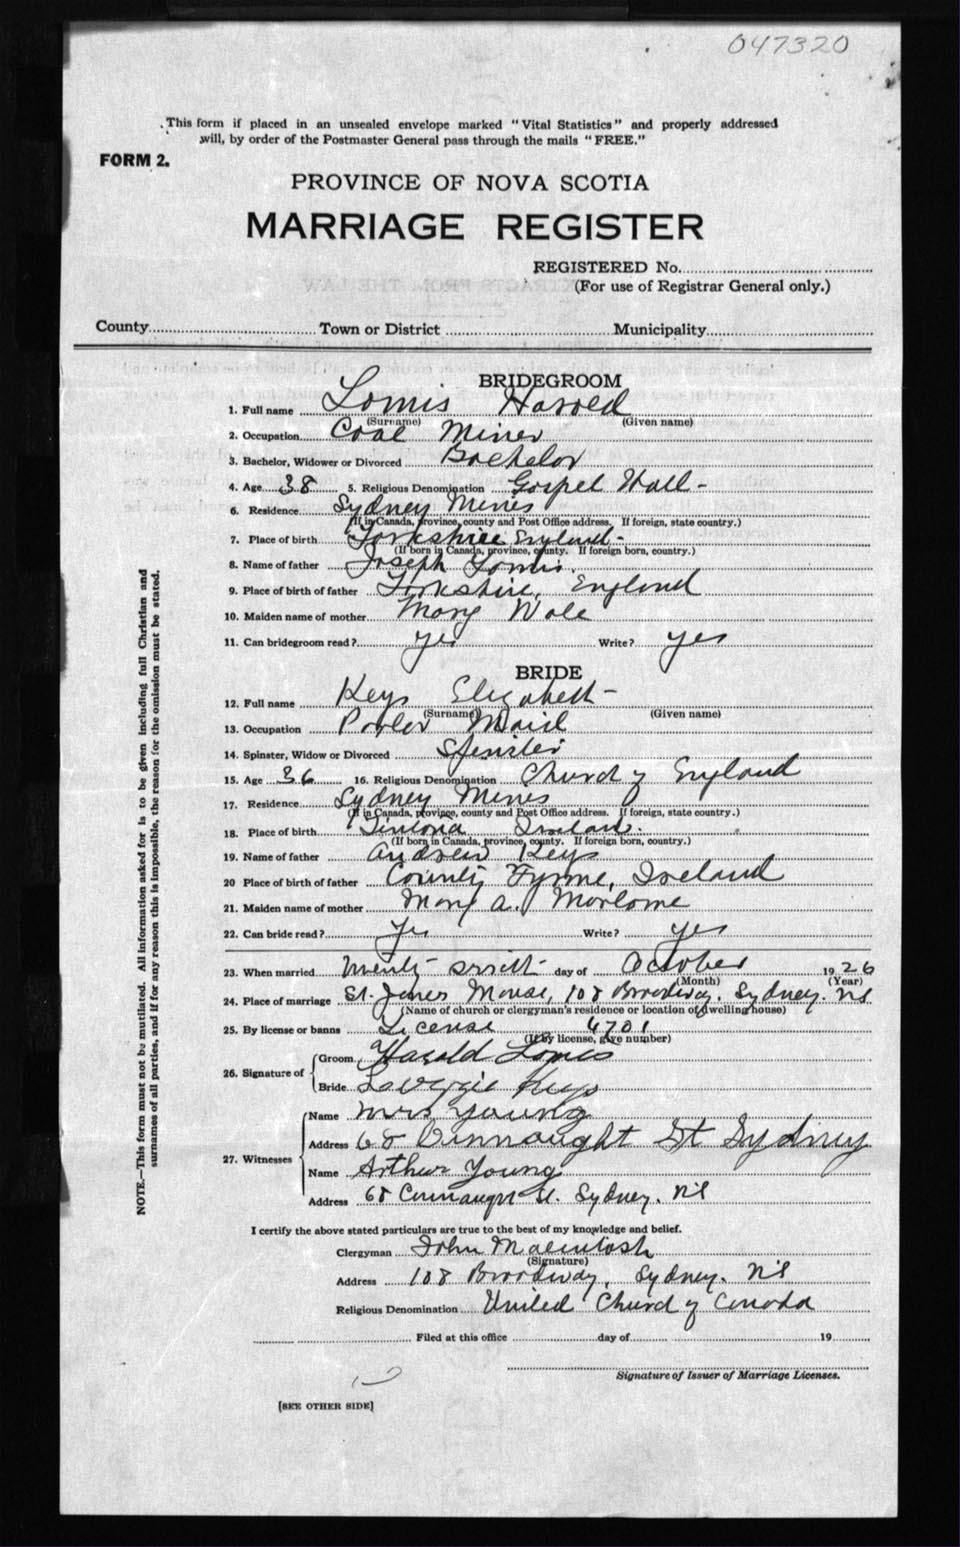 047320
This form if placed in an unsealed envelope marked "Vital Statistics" and properly addressed
will, by order of the Postmaster General pass through the mails "FREE."
FORM 2.
PROVINCE OF NOVA SCOTIA
MARRIAGE REGISTER
REGISTERED No.
(For use of Registrar General only.)
County Town or District Municipality
BRIDEGROOM
1. Full name Lomis Harold
(Surname) (Given name)
2. Occupation Coal Miner
3. Bachelor, Widower or Divorced Bachelor
4. Age 38 5. Religious Denomination Gospel Hall -
6. Residence Sydney Mines
(If in Canada, province, county and Post Office address. If foreign, state country.)
7. Place of birth Yorkshire England -
(If born in Canada, province, county. If foreign born, country.)
8. Name of father Joseph Lomis.
9. Place of birth of father Yorkshire, England
10. Maiden name of mother Mary
11. Can bridegroom read? yes Write? yes
BRIDE
12. Full name Keys Elizabeth -
(Surname) (Given name)
13. Occupation Parlor Maid
14. Spinster, Widow or Divorced Spinster
15. Age 36 16. Religious Denomination Church of England
17. Residence Sydney Mines
(If in Canada, province, county and Post Office address. If foreign, state country.)
18. Place of birth Ireland.
(If born in Canada, province, county. If foreign born, country.)
19. Name of father Andrew Keys
20 Place of birth of father County Tyrone, Ireland
21. Maiden name of mother Mary A.
22. Can bride read? Yes Write? yes
23. When married Twenty day of October 1926
(Month) (Year)
24. Place of marriage St. James Manse, 108 Broadway, Sydney. NS
(Name of church or clergyman's residence or location of dwelling house)
25. By license or banns License 4701
(If by license, give number)
26. Signature of Groom Harold Lomis
Bride Keys
27. Witnesses
Name Mrs Young
Address 68 Connaught St Sydney
Name Arthur Young
Address 68 Connaught St. Sydney. NS
I certify the above stated particulars are true to the best of my knowledge and belief.
Clergyman John Macintosh
(Signature)
Address 108 Broadway, Sydney. NS
Religious Denomination United Church of Canada
Filed at this office day of 19
Signature of Issuer of Marriage Licenses.
[SEE OTHER SIDE]
NOTE.—This form must not be mutilated. All information asked for is to be given including full Christian and
surnames of all parties, and if for any reason this is impossible, the reason for the omission must be stated.